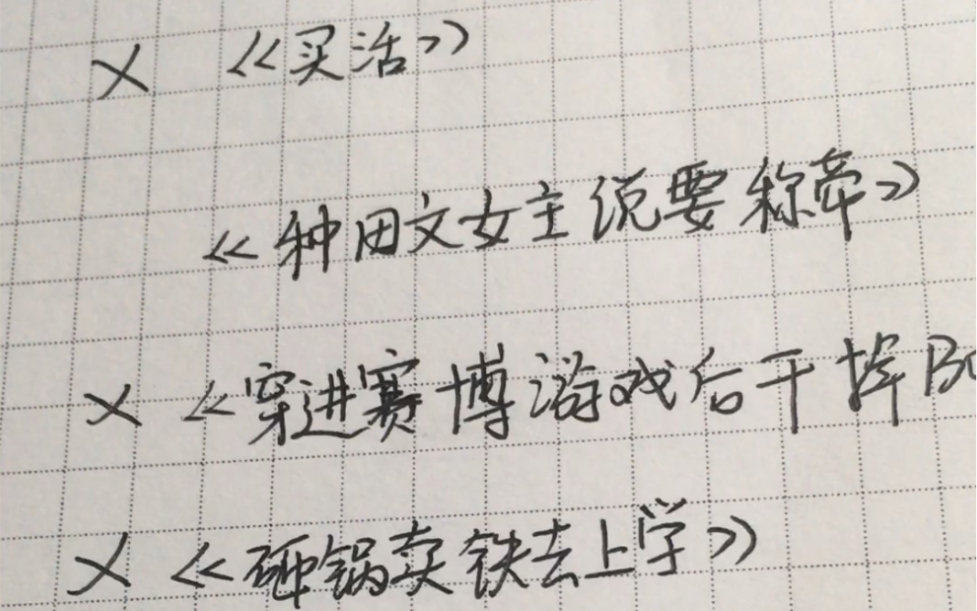 × 《买活》
《种田文女主说要称帝》
× 《穿进赛博游戏后干掉Bo
× 《砸锅卖铁去上学》